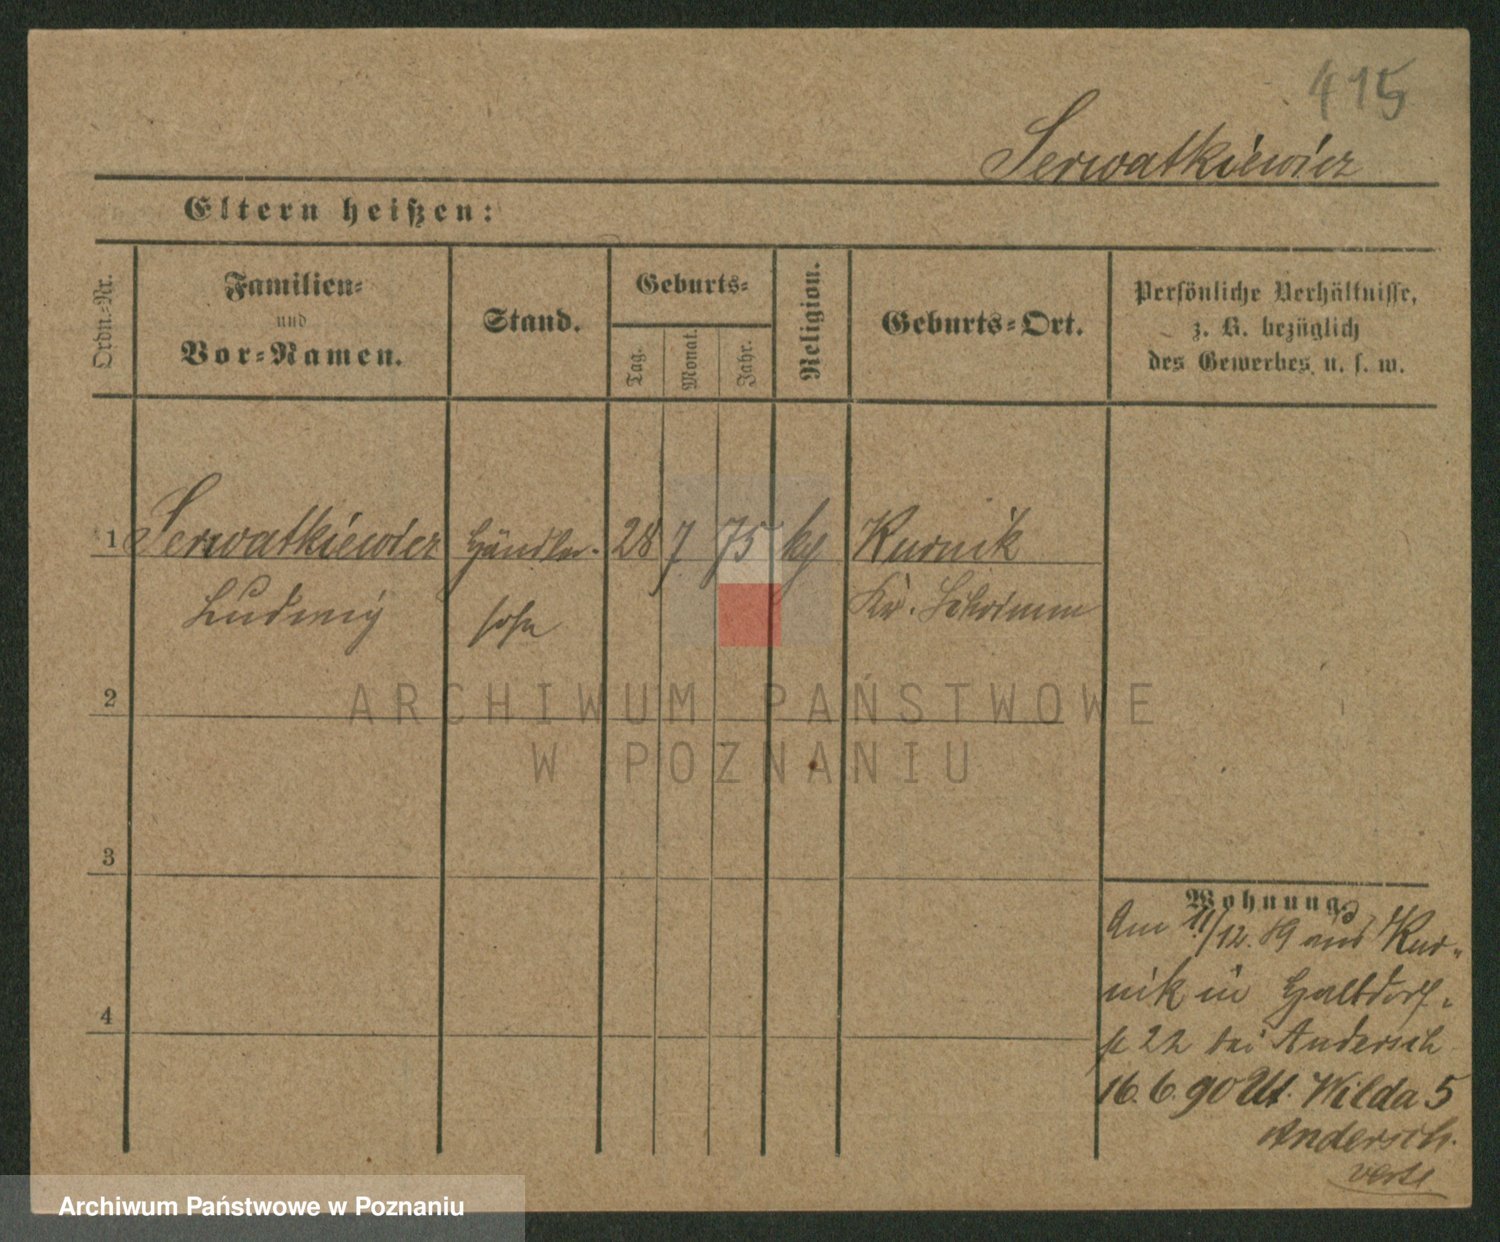 415
Serwatkiewicz
Eltern heißen:
Ordn.-Nr.
Familien-
und
Vor-Namen.
Stand.
Geburts-
Tag.
Monat.
Jahr.
Religion.
Geburts-Ort.
Persönliche Verhältnisse,
z. B. bezüglich
des Gewerbes u. s. w.
1 Serwatkiewicz Händler- 28 7 75 kg Kurnik
Ludwig sohn Kr. Schrimm
2
ARCHIWUM PAŃSTWOWE
W POZNANIU
3
Wohnung.
Am 11/12. 89 aus Kur-
nik in Halbdorf-
st 22 bei Andersch
4
16.6.90 Ut. Wilda 5
Andersch.
verte
Archiwum Państwowe w Poznaniu